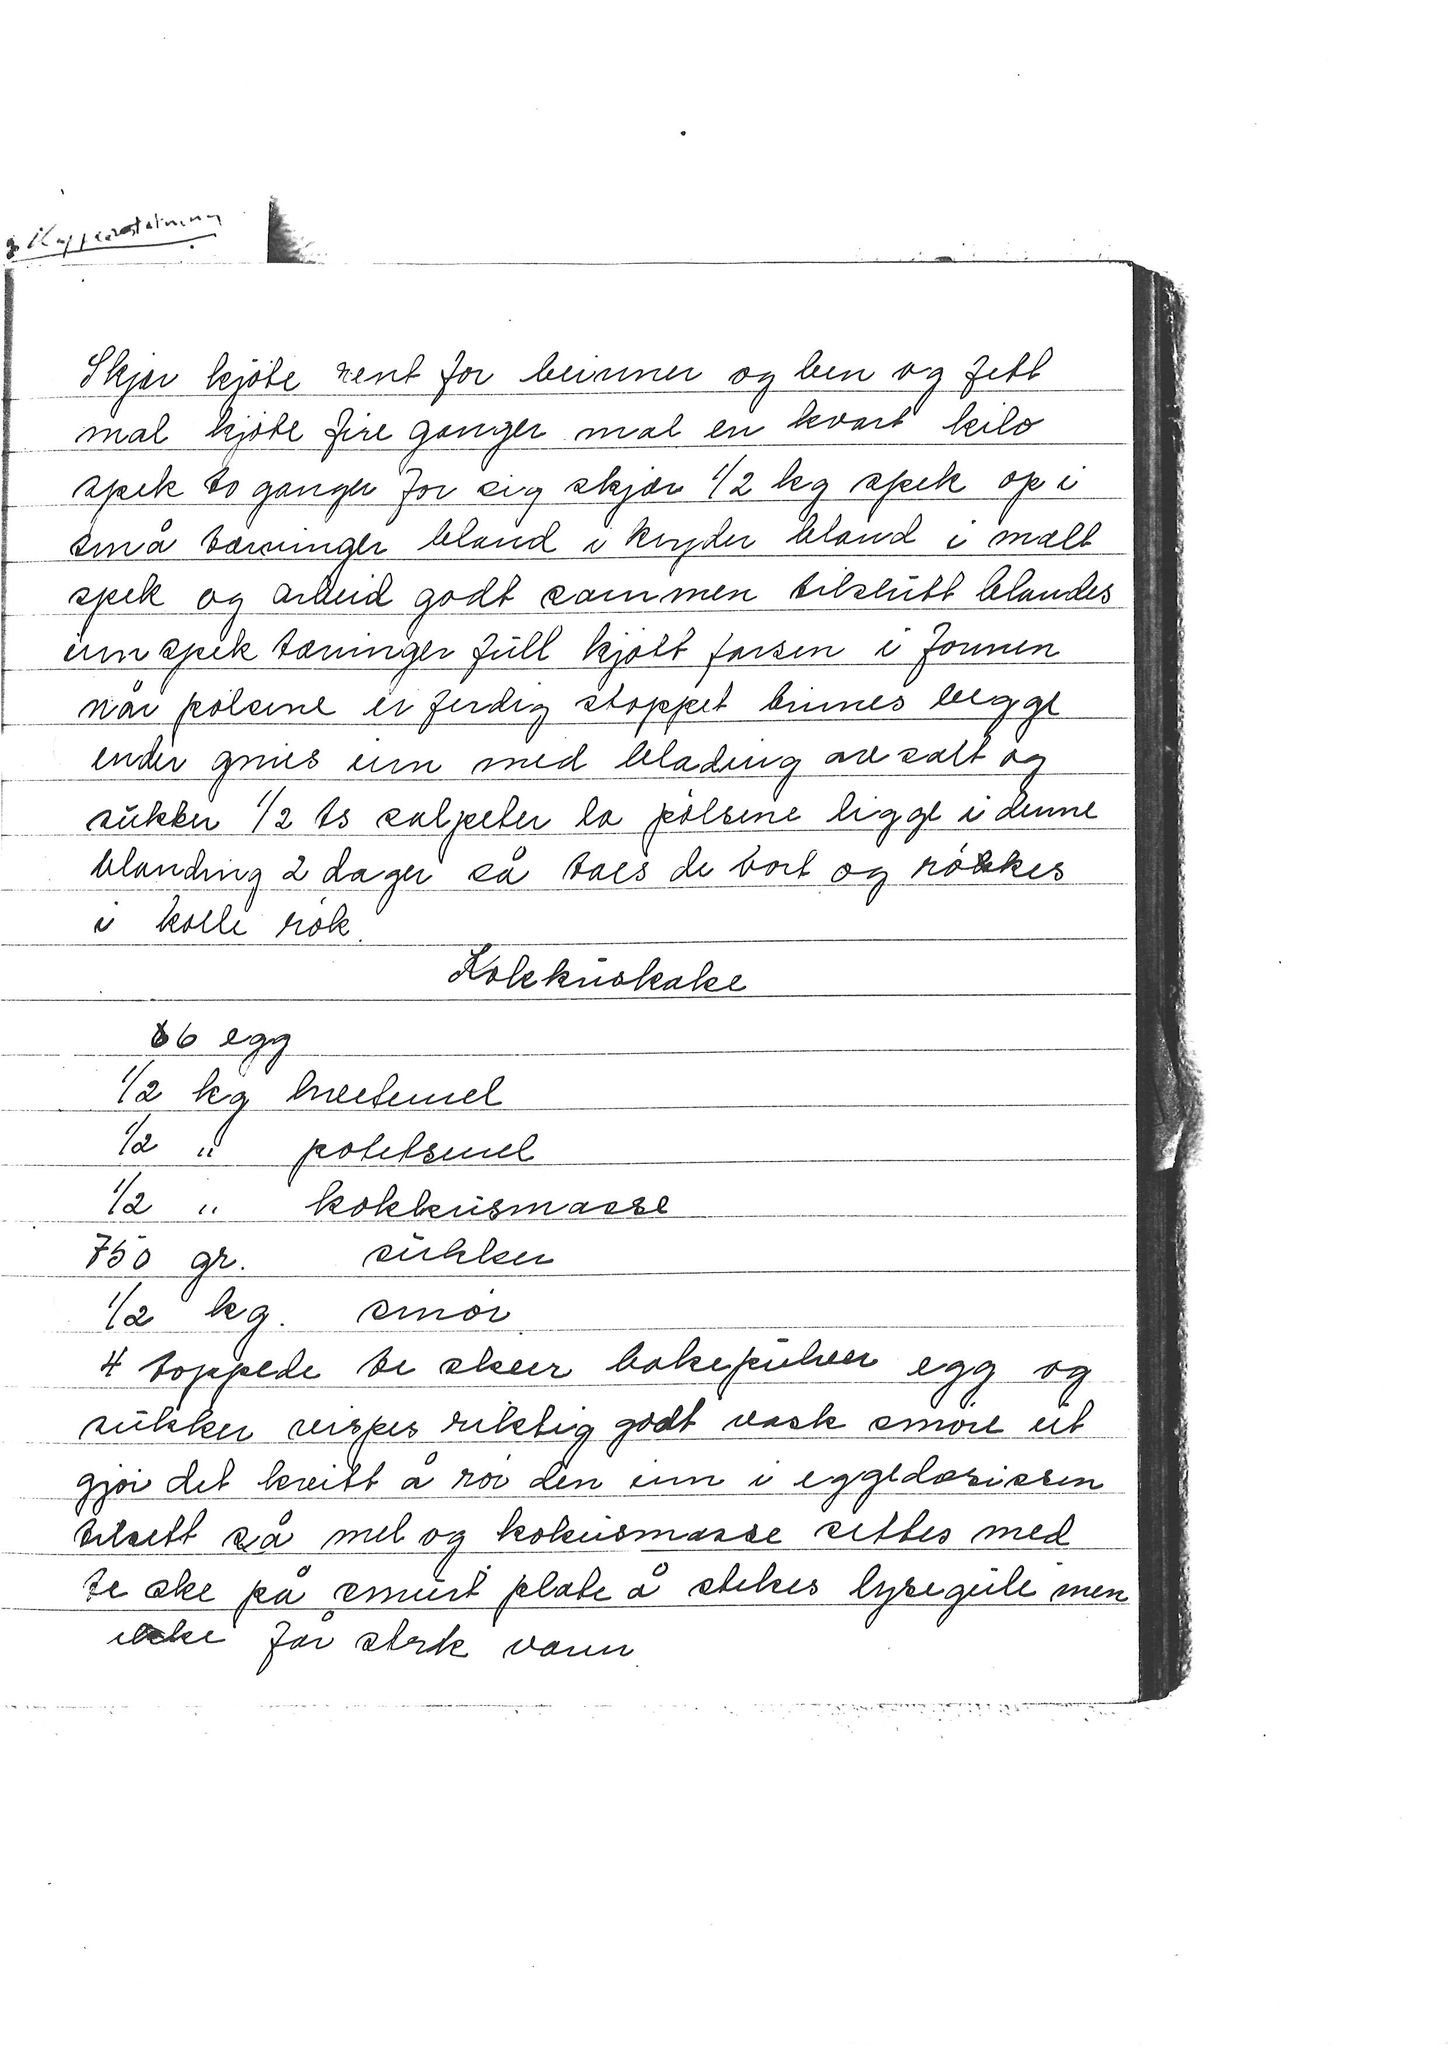 Skjær kjöte rent for beinner og ben og fett
mal kjöte fire ganger mal en kvart kilo
spek to ganger for sig skjær 1/2 kg spek op i
små tærninger bland i kryder bland i malt
spek og arbeid godt sammen tilslutt blandes
inn spek tærninger full kjött farsen i
når pölsene er ferdig stoppet binnes begge
ender gnies inn med blading av salt og
sukker 1/2 ts salpeter la pölsene ligge i denne
blanding 2 dager så taes de bort og rökes
i kolle rök.
Kokkuskake
6 egg
1/2 kg hvetemel
1/2 " potetsmel
1/2 " kokkusmasse
750 gr. sukker
1/2 kg. smör
4 toppede te skeer bakepulver egg og
sukker vispes riktig godt vask smöre ut
gjör det kvitt å rör den inn i eggedosissen
tilsett så mel og kokusmasse settes med
te ske på smurt plate å stekes lysegule men
ikke får strk varm